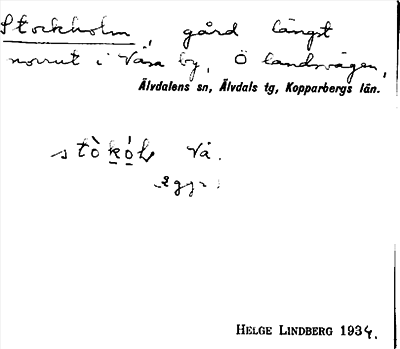 Stockholm, gård längst
norrut i Våsa by, Ö landsvägen,
Älvdalens sn, Älvdals tg, Kopparbergs län.
Vå.
HELGE LINDBERG 1934.